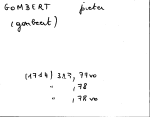 GOMBERT pieter
(gombert)
(1744) 323, 77vo
" , 78
" , 78 vo